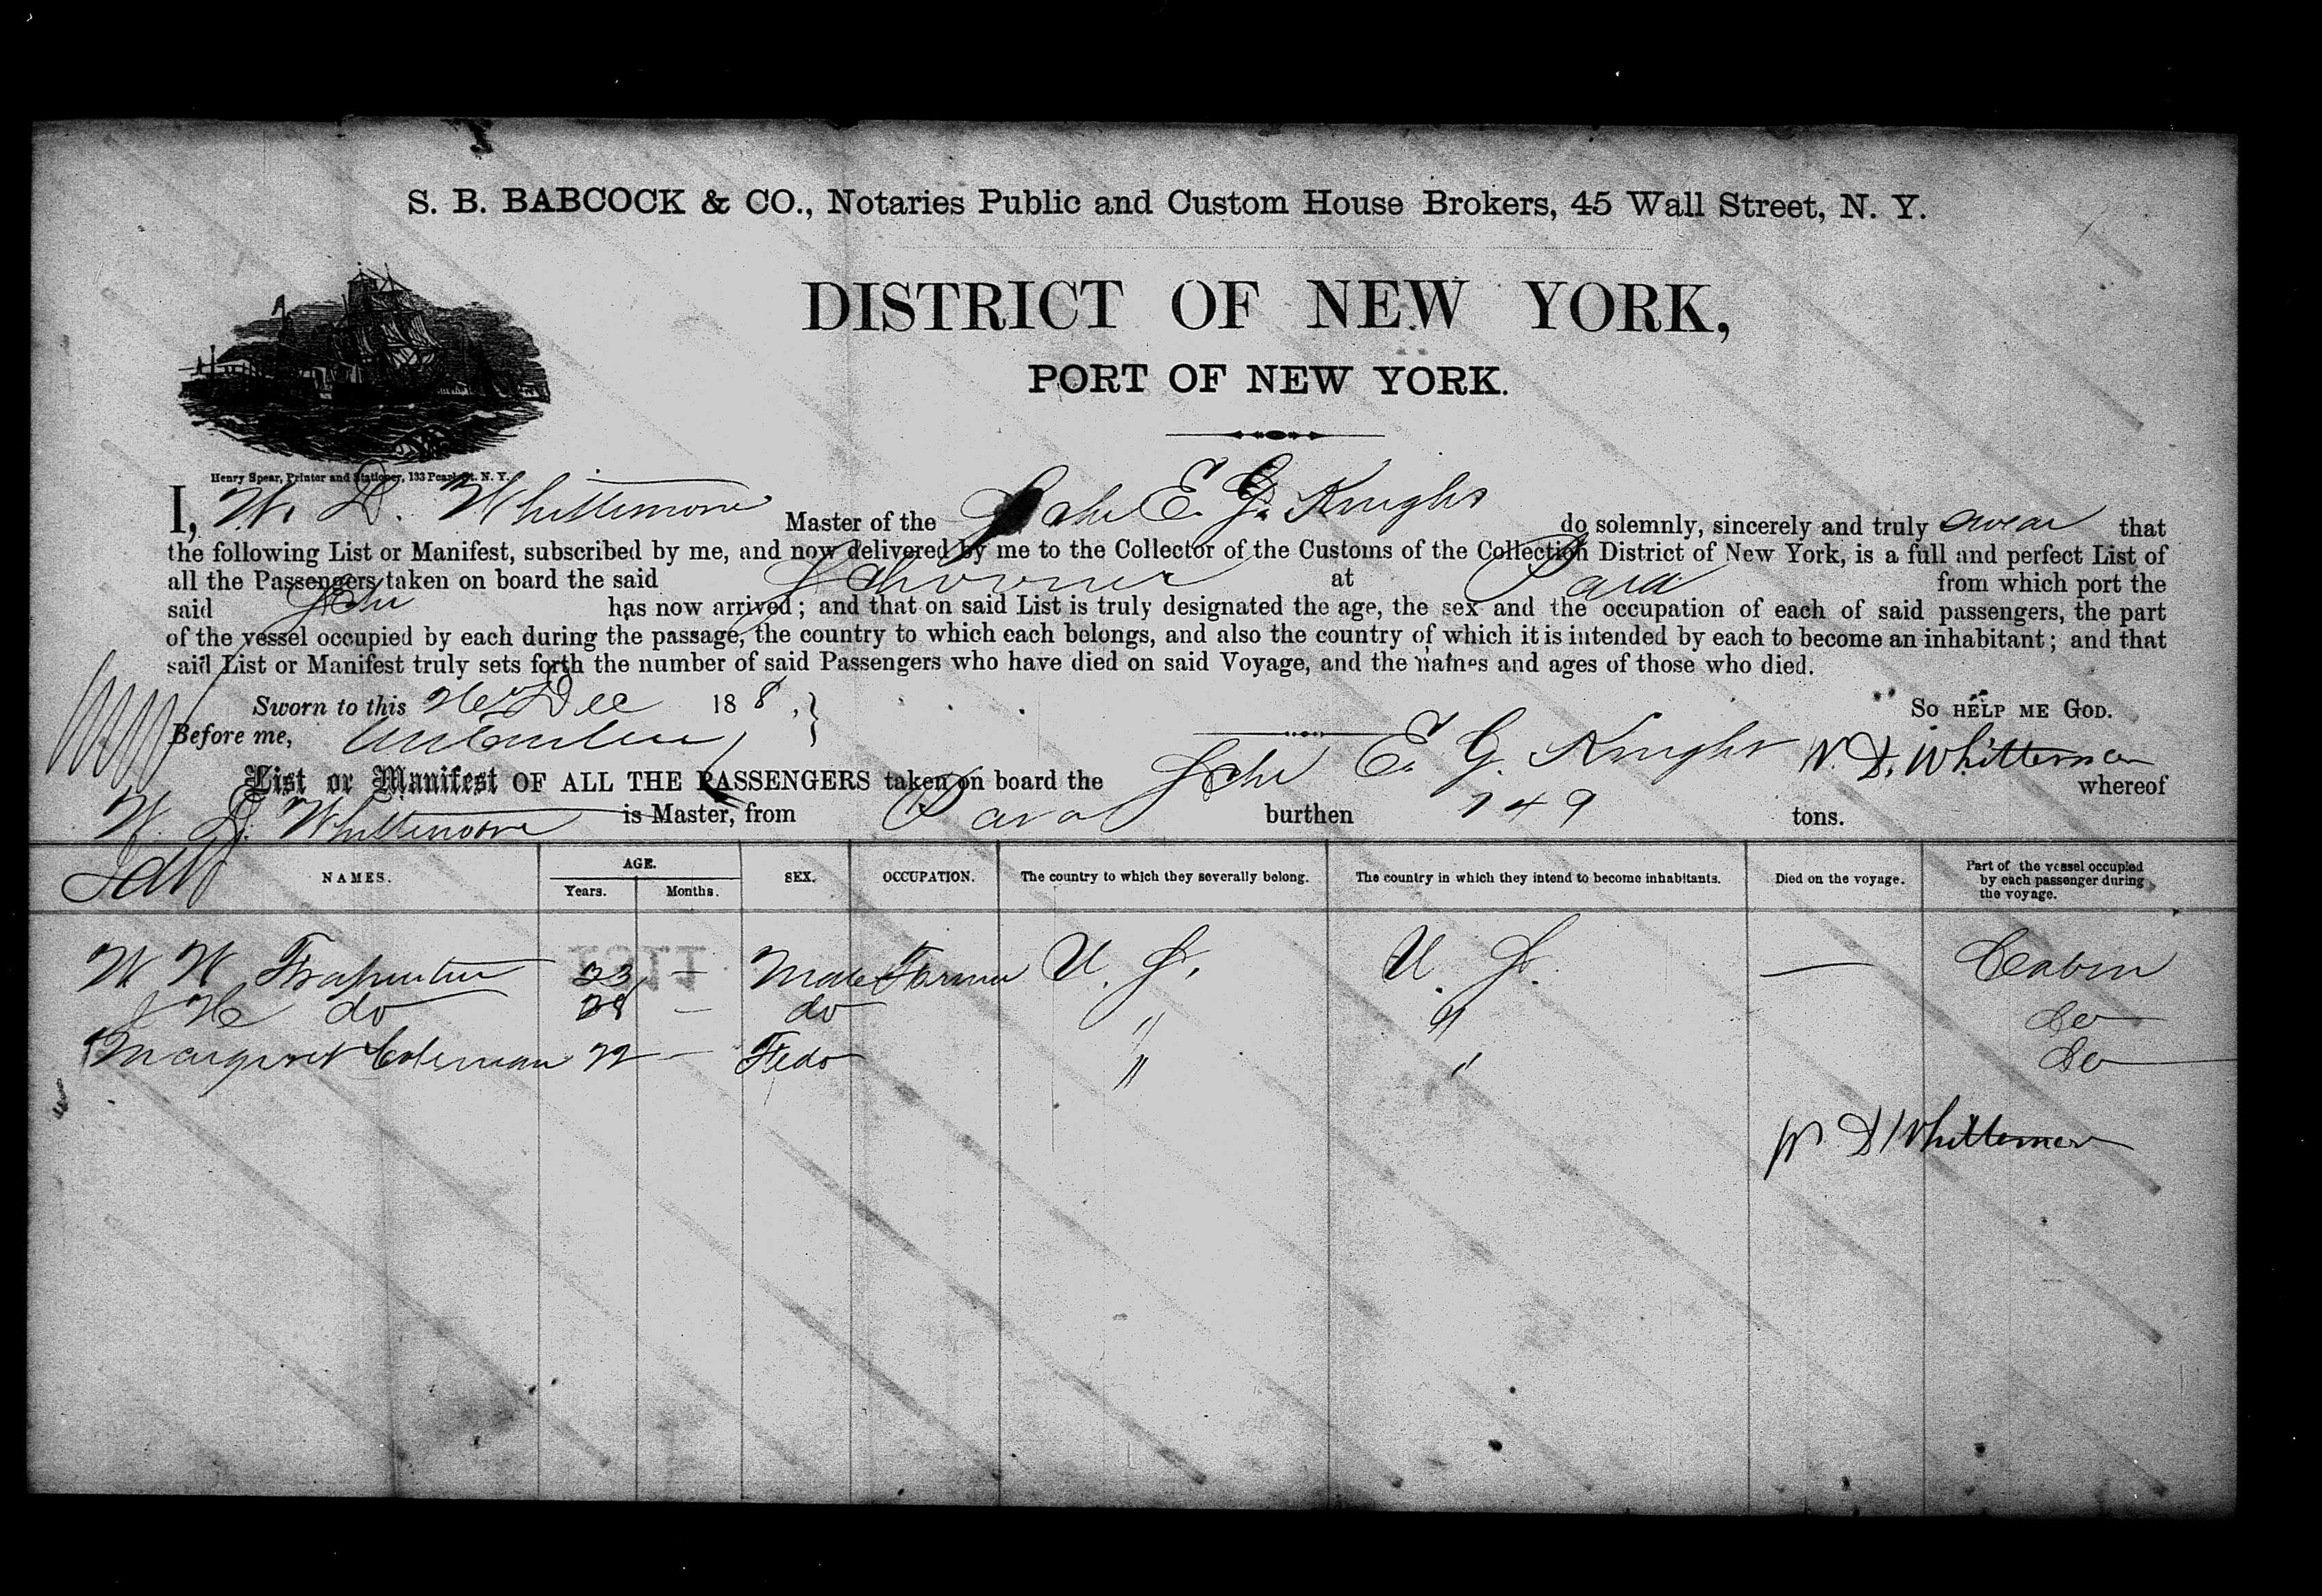 S. B. BABCOCK & CO., Notaries Public and Custom House Brokers, 45 Wall Street, N. Y.
DISTRICT OF NEW YORK,
PORT OF NEW YORK.
Henry Spear, Printer and Stationer, 133 Pearl St. N. Y.
I, W. D. Whittemore Master of the Schr E. G. Knight do solemnly, sincerely and truly swear that
the following List or Manifest, subscribed by me, and now delivered by me to the Collector of the Customs of the Collection District of New York, is a full and perfect List of
all the Passengers taken on board the said Schooner at Para from which port the
said Schr has now arrived; and that on said List is truly designated the age, the sex and the occupation of each of said passengers, the part
of the vessel occupied by each during the passage, the country to which each belongs, and also the country of which it is intended by each to become an inhabitant; and that
said List or Manifest truly sets forth the number of said Passengers who have died on said Voyage, and the names and ages of those who died.
Sworn to this Dec 188 , } So help me God.
Before me, W. D. Whittemore
List or Manifest OF ALL THE PASSENGERS taken on board the Schr E. G. Knight whereof
W. D. Whittemore is Master, from Para burthen 149 tons.
NAMES. AGE. Years. Months. SEX. OCCUPATION. The country to which they severally belong. The country in which they intend to become inhabitants. Died on the voyage. Part of the vessel occupied by each passenger during the voyage.
W W 23 — Male Farmer U. S. U. S. — Cabin
do 28 — do " " Do
Margaret Coleman 22 — Fe do " " Do
W D Whittemore